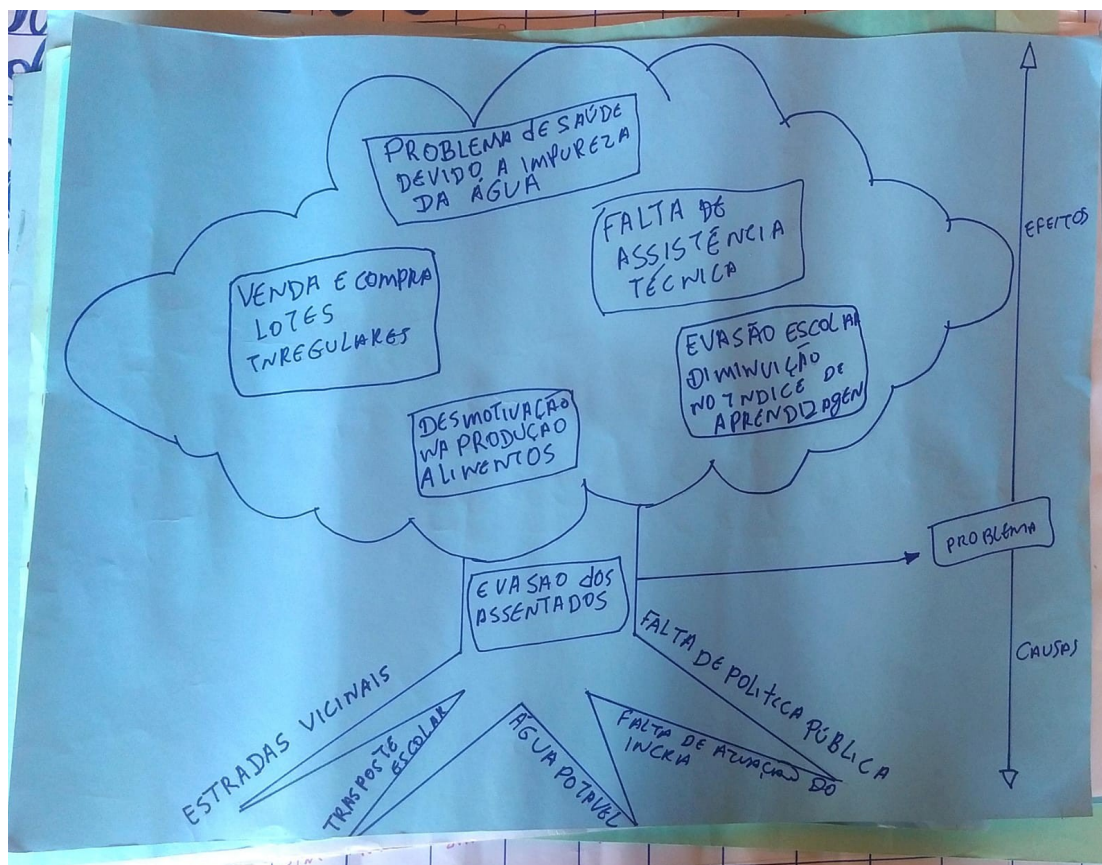 PROBLEMA dE SAÚDE
DEVIDO A IMPUREZA
DA ÁGUA
FALTA DE
ASSISTÊNCIA
TÉCNICA
VENDA E COMPRA
LOTES
INREGULARES
EVASÃO ESCOLAR
DIMINUIÇÃO
NO INDICE DE
APRENDIZAGEN
DESMOTIVAÇÃO
NA PRODUÇÃO
ALIMENTOS
EFEITOS
PROBLEMA
CAUSAS
EVASAO dOS
ASSENTADOS
ESTRADAS VICINAIS
TRASPOSTE
ESCOLAR
ÁGUA POTAVEL
FALTA DE ATUAÇÃO DO
INCRA
FALTA DE POLITICA PÚBLICA